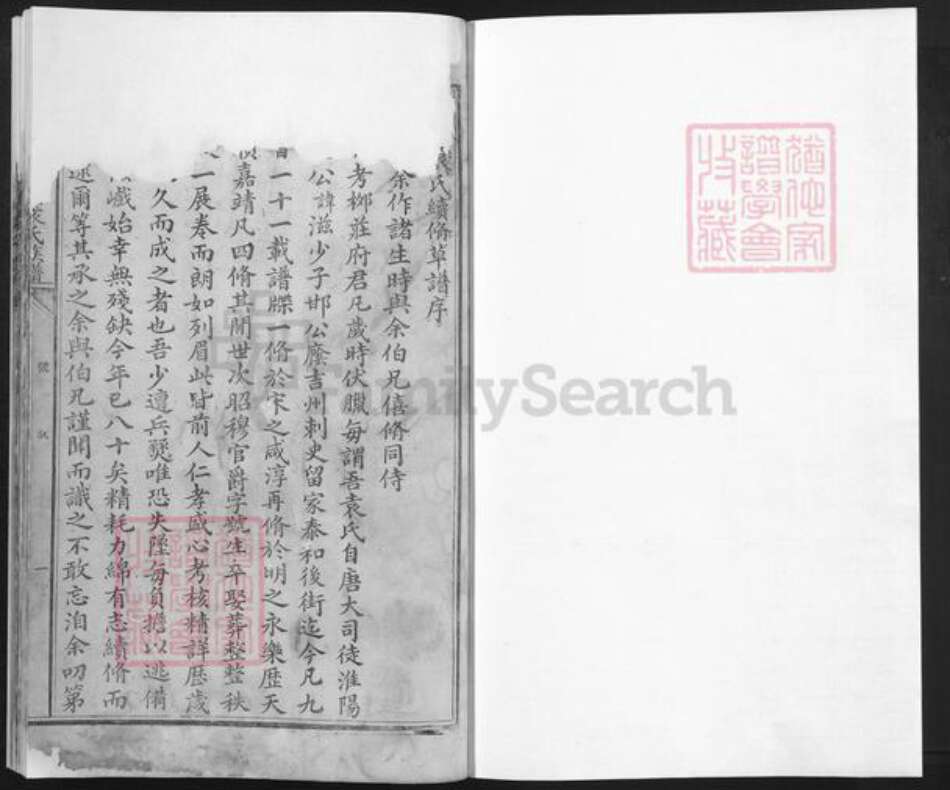 氏續脩草譜序
余作諸生時與余伯兄僖脩同侍
考栁莊府君凡歲時伏臘每謂吾袁氏自唐大司徒淮陽
公諱滋少子邯公廕吉州刺史留家泰和後街迄今凡九
百一十一載譜牒一脩於宋之咸淳再脩於明之永樂歷天
嘉靖凡四脩其間世次昭穆官爵字號生卒娶葬整整秩
一展卷而朗如列眉此皆前人仁孝盛心考核精詳歷歲
久而成之者也吾少遭兵燹唯恐失墜每負擔以逃備
嚱始幸無殘缺今年已八十矣精耗力綿有志續脩而
逮爾等其承之余與伯兄謹聞而識之不敢忘洎余叨第
袁氏族譜
號
一
猶他家
譜學會
收藏
FamilySearch